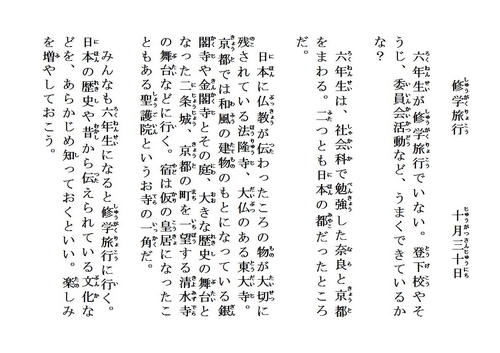 修学旅行
十月三十日
六年生が修学旅行でいない。登下校やそ
うじ、委員会活動など、うまくできているか
な？
六年生は、社会科で勉強した奈良と京都
をまわる。二つとも日本の都だったところ
だ。
日本に仏教が伝わったころの物が大切に
残されている法隆寺、大仏のある東大寺。
京都では和風の建物のもとになっている銀
閣寺や金閣寺とその庭、大きな歴史の舞台と
なった二条城、京都の町を一望する清水寺
の舞台などに行く。宿は仮の皇居になったこ
ともある聖護院というお寺の一角だ。
みんなも六年生になると修学旅行に行く。
日本の歴史や昔から伝えられている文化な
どを、あらかじめ知っておくといい。楽しみ
を増やしておこう。